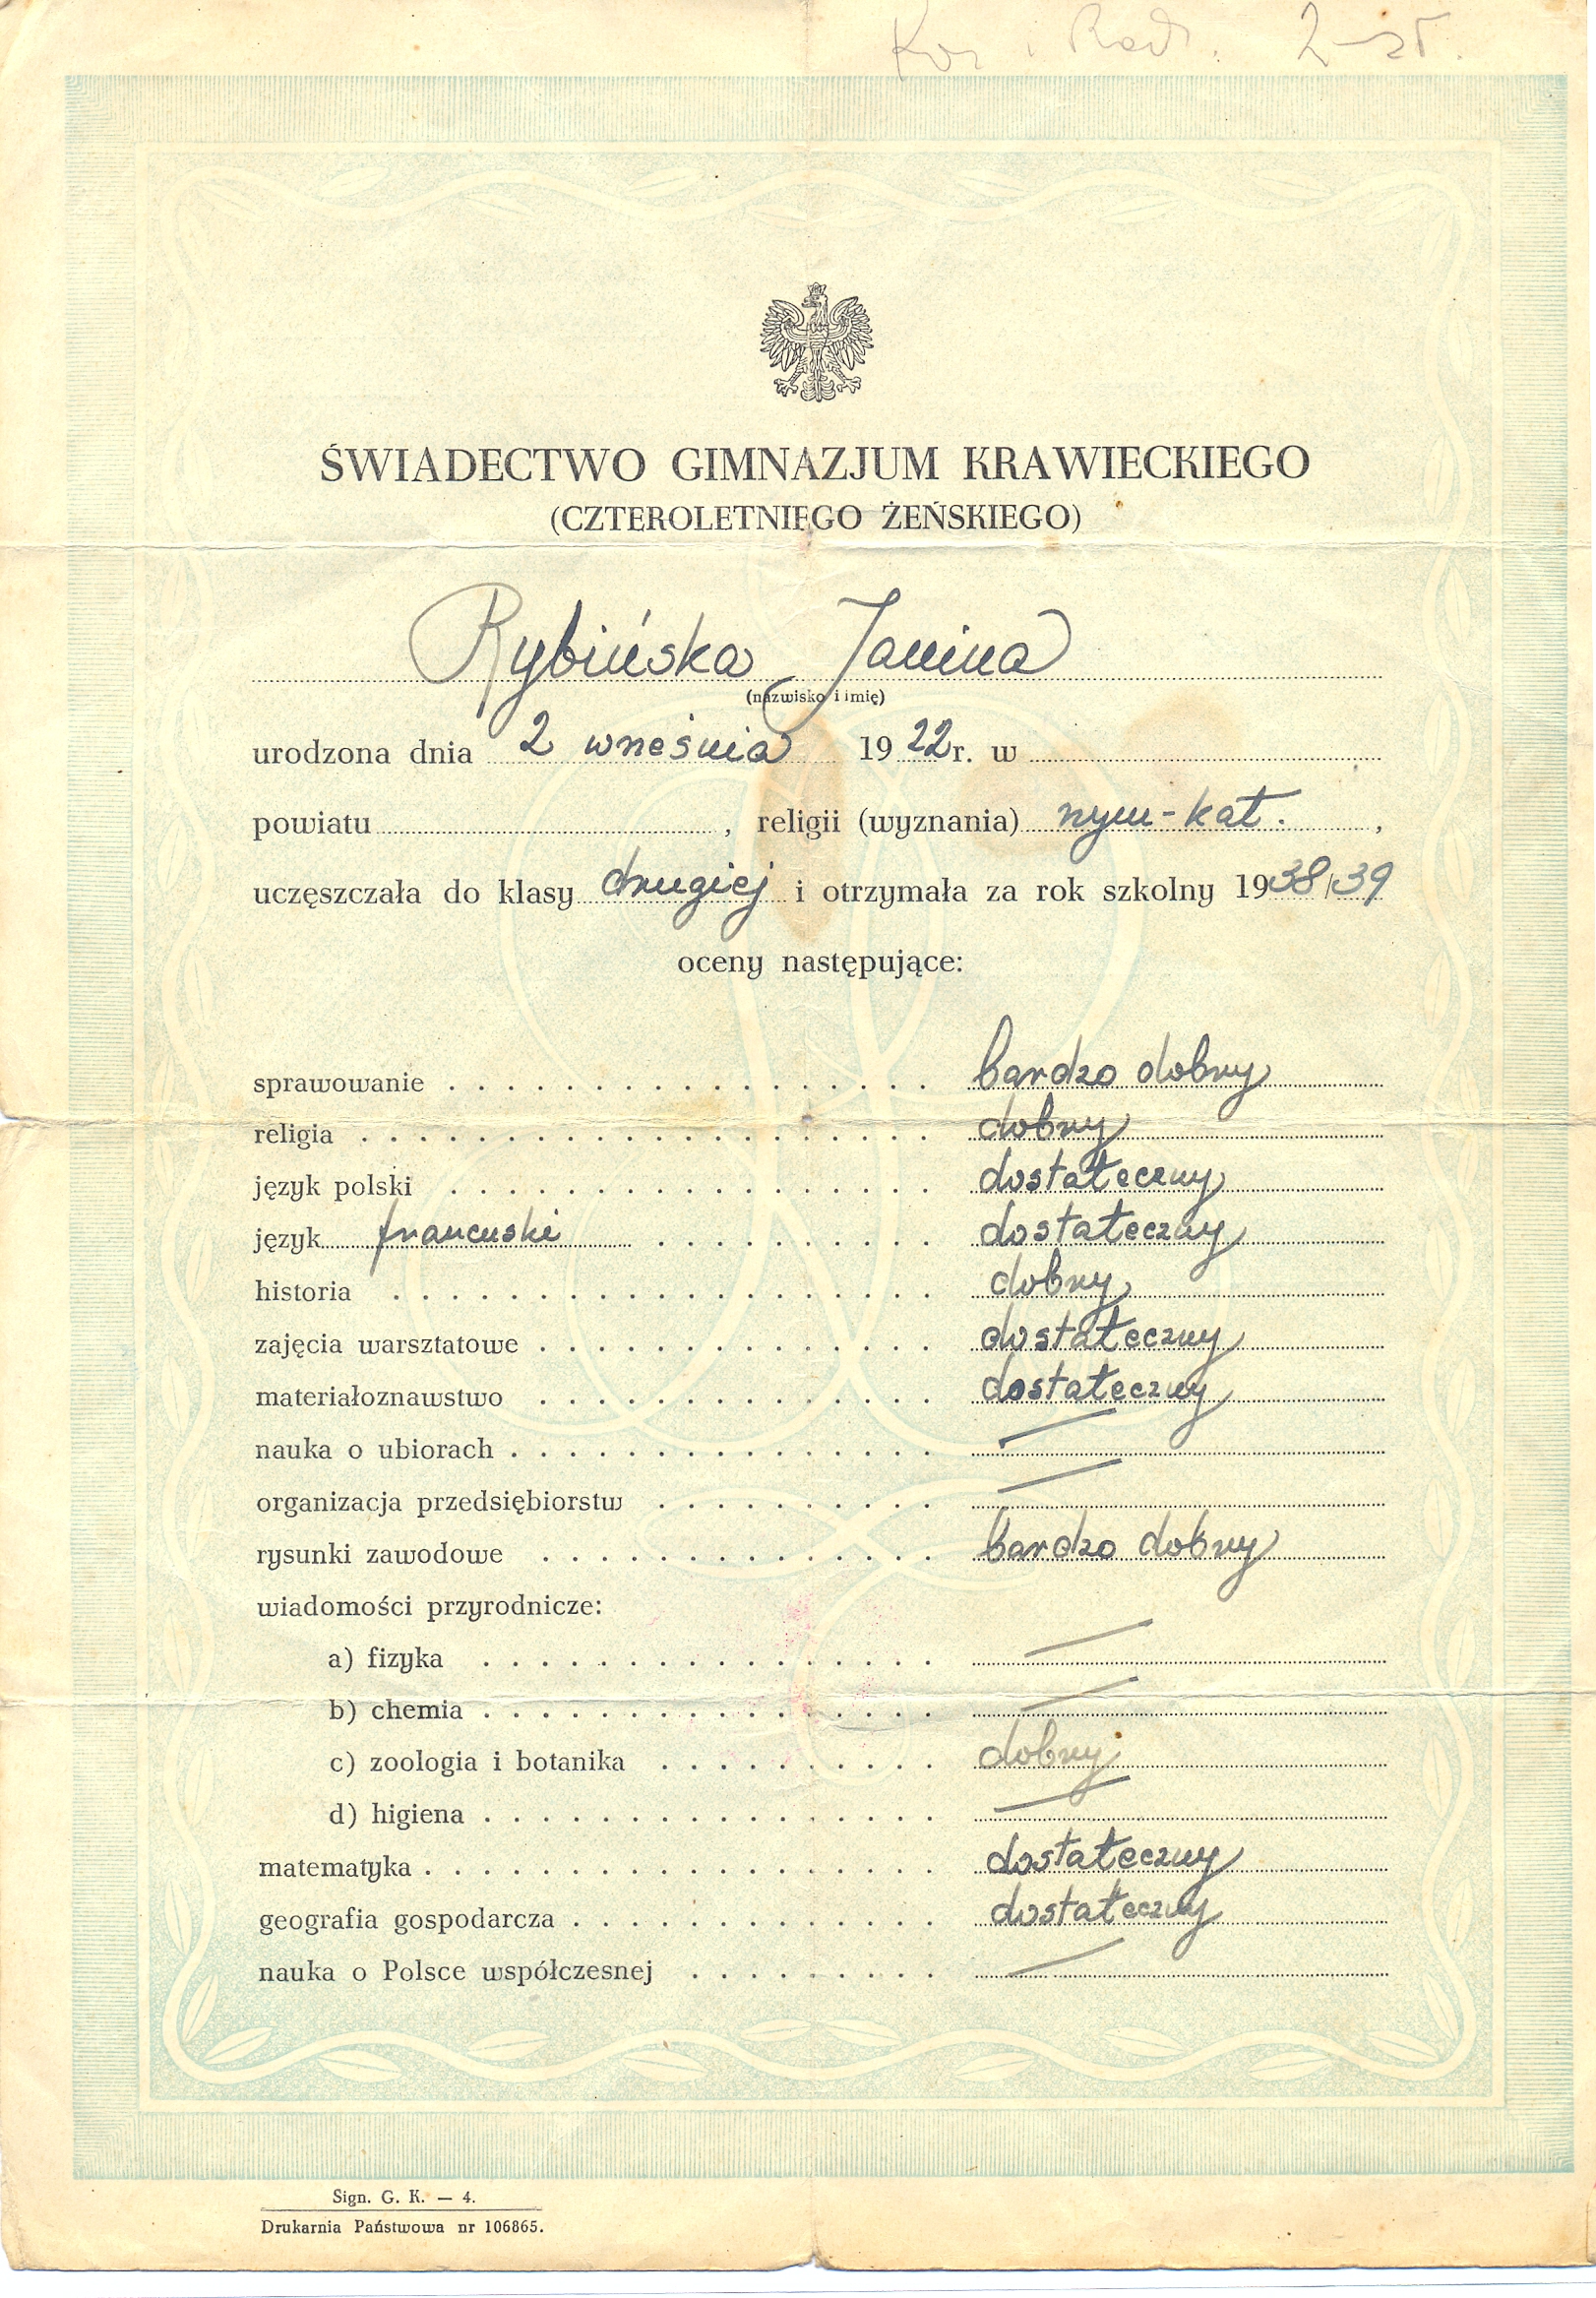 2 zł.
ŚWIADECTWO GIMNAZJUM KRAWIECKIEGO
(CZTEROLETNIEGO ŻEŃSKIEGO)
Rybińska Janina
(nazwisko i imię)
urodzona dnia 2 września 1922 r. w
powiatu , religii (wyznania) rzym-kat. ,
uczęszczała do klasy drugiej i otrzymała za rok szkolny 1938/39
oceny następujące:
sprawowanie . . . . . . . . . . . . . . . . . bardzo dobry
religia . . . . . . . . . . . . . . . . . . . . dobry
język polski . . . . . . . . . . . . . . . . . dostateczny
język francuski . . . . . . . . . . dostateczny
historia . . . . . . . . . . . . . . . . . . . dobry
zajęcia warsztatowe . . . . . . . . . . . . . . dostateczny
materiałoznawstwo . . . . . . . . . . . . . . dostateczny
nauka o ubiorach . . . . . . . . . . . . . . . —
organizacja przedsiębiorstw . . . . . . . . . . —
rysunki zawodowe . . . . . . . . . . . . . . bardzo dobry
wiadomości przyrodnicze:
a) fizyka . . . . . . . . . . . . . . . . —
b) chemia . . . . . . . . . . . . . . . . —
c) zoologia i botanika . . . . . . . . . . dobry
d) higiena . . . . . . . . . . . . . . . . —
matematyka . . . . . . . . . . . . . . . . . . dostateczny
geografia gospodarcza . . . . . . . . . . . . . dostateczny
nauka o Polsce współczesnej . . . . . . . . . —
Sign. G. K. — 4.
Drukarnia Państwowa nr 106865.